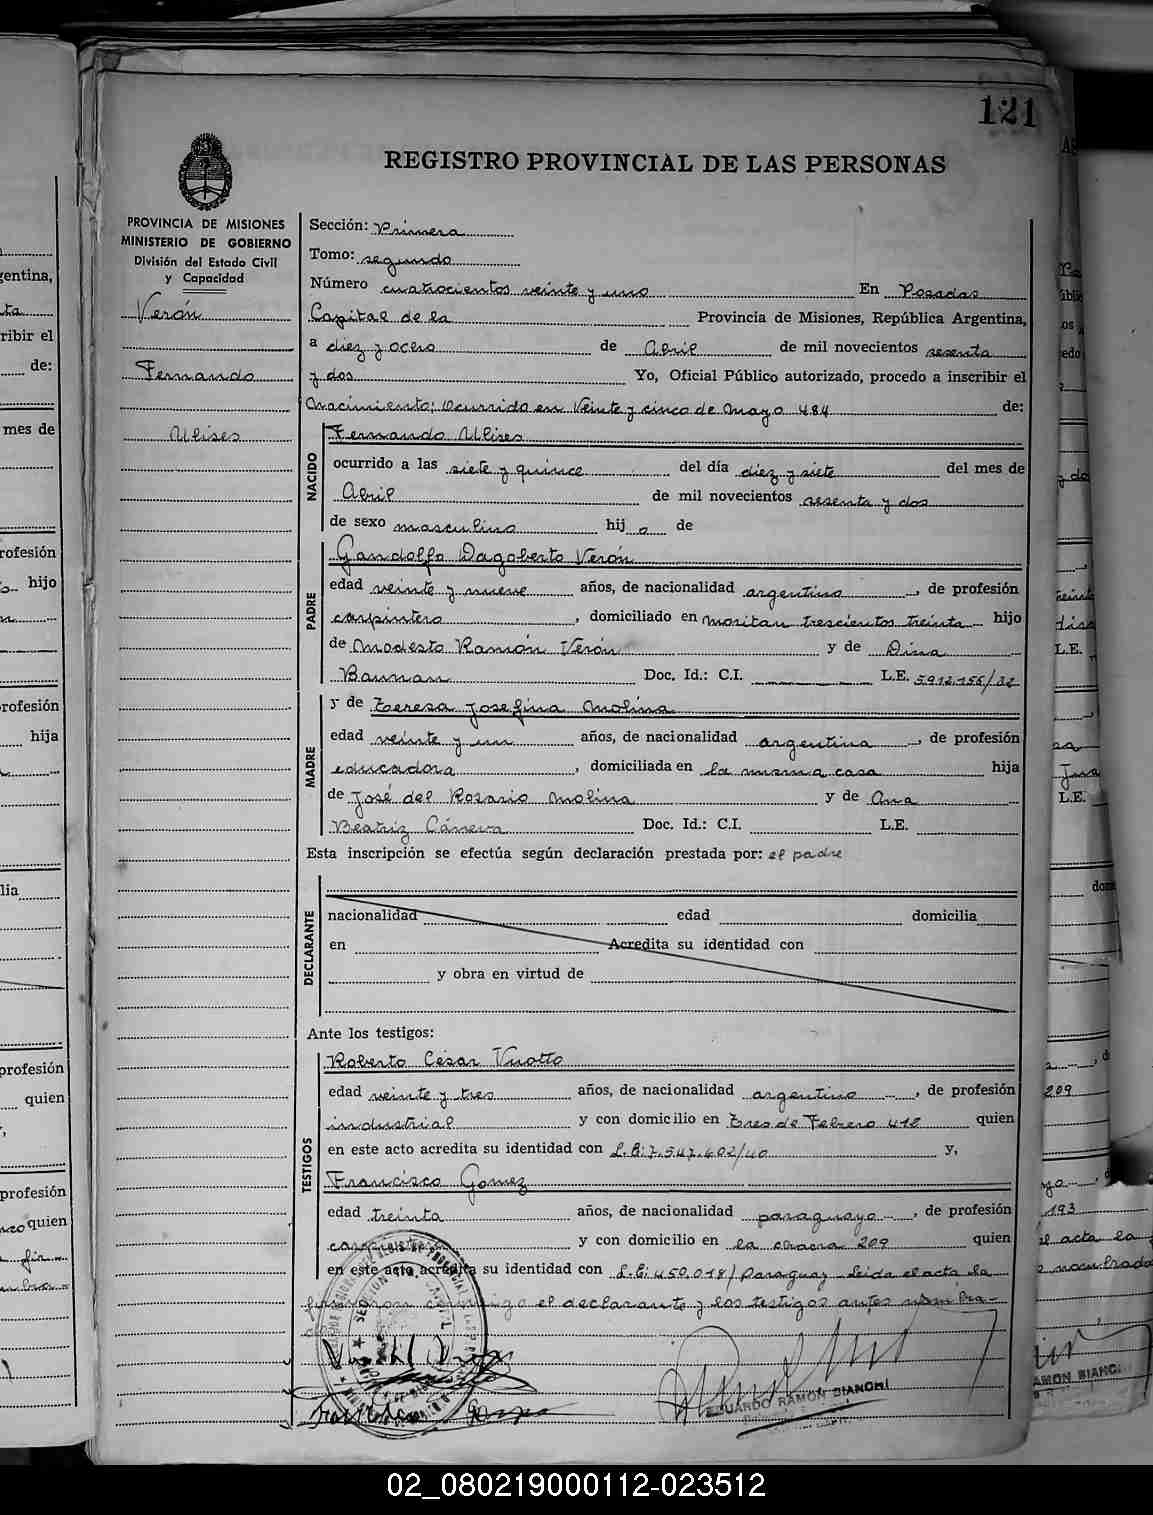 121
REGISTRO PROVINCIAL DE LAS PERSONAS
PROVINCIA DE MISIONES
MINISTERIO DE GOBIERNO
División del Estado Civil
y Capacidad
Verón
Fernando
Ulises
Sección: Primera
Tomo: segundo
Número cuatrocientos veinte y uno En Posadas
Capital de la Provincia de Misiones, República Argentina,
a diez y ocho de Abril de mil novecientos sesenta
y dos Yo, Oficial Público autorizado, procedo a inscribir el
Nacimiento: Ocurrido en Veinte y cinco de Mayo 484 de:
NACIDO
Fernando Ulises
ocurrido a las siete y quince del día diez y siete del mes de
Abril de mil novecientos sesenta y dos
de sexo masculino hij o de
PADRE
Gandolfo Dagoberto Verón
edad veinte y nueve años, de nacionalidad argentino, de profesión
carpintero, domiciliado en Moritan trescientos treinta hijo
de Modesto Ramón Verón y de Dina
Bauman Doc. Id.: C.I. L.E. 5.912.155/32
MADRE
y de Teresa Josefina Molina
edad veinte y un años, de nacionalidad argentina, de profesión
educadora, domiciliada en la misma casa hija
de José del Rosario Molina y de Ana
Beatriz Doc. Id.: C.I. L.E.
Esta inscripción se efectúa según declaración prestada por: el padre
DECLARANTE
nacionalidad edad domicilia
en Acredita su identidad con
y obra en virtud de
Ante los testigos:
TESTIGOS
Roberto César Vuotto
edad veinte y tres años, de nacionalidad argentino, de profesión
industrial y con domicilio en Tres de Febrero 412 quien
en este acto acredita su identidad con L.E: 7.547.602/40 y,
Francisco Gomez
edad treinta años, de nacionalidad paraguayo, de profesión
y con domicilio en la chacra 209 quien
en este acto acredita su identidad con L.E: 450.018/Paraguay Leida el acta la
firmaron conmigo el declarante y los testigos antes nombra-
EDUARDO RAMON BIANCHI
02_080219000112-023512